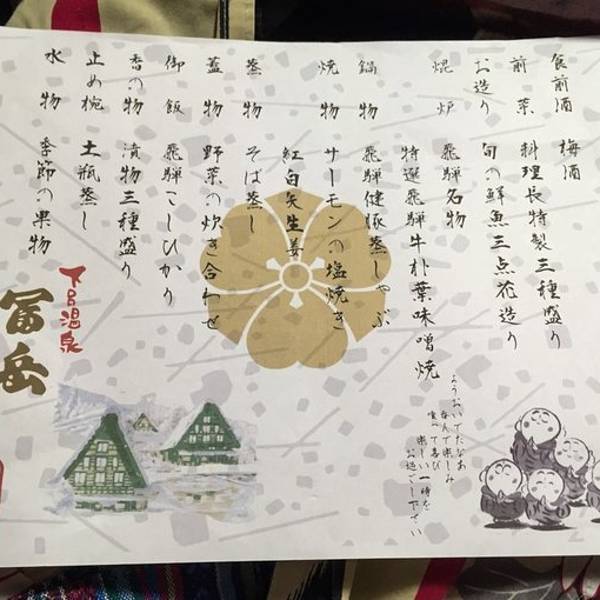 食前酒 梅酒
前菜 料理長特製三種盛り
お造り 旬の鮮魚三点花造り
焜炉 飛騨名物
特選飛騨牛朴葉味噌焼
鍋物 飛騨健豚蒸しゃぶ
焼物 サーモンの塩焼き
紅白矢生姜
蒸物 そば蒸し
蓋物 野菜の炊き合わせ
御飯 飛騨こしひかり
香の物 漬物三種盛り
止め椀 土瓶蒸し
水物 季節の果物
ようおいでたなあ
呑んで楽しみ
食べて喜び
楽しい一時を
お過ごし下さい
下呂温泉
冨岳